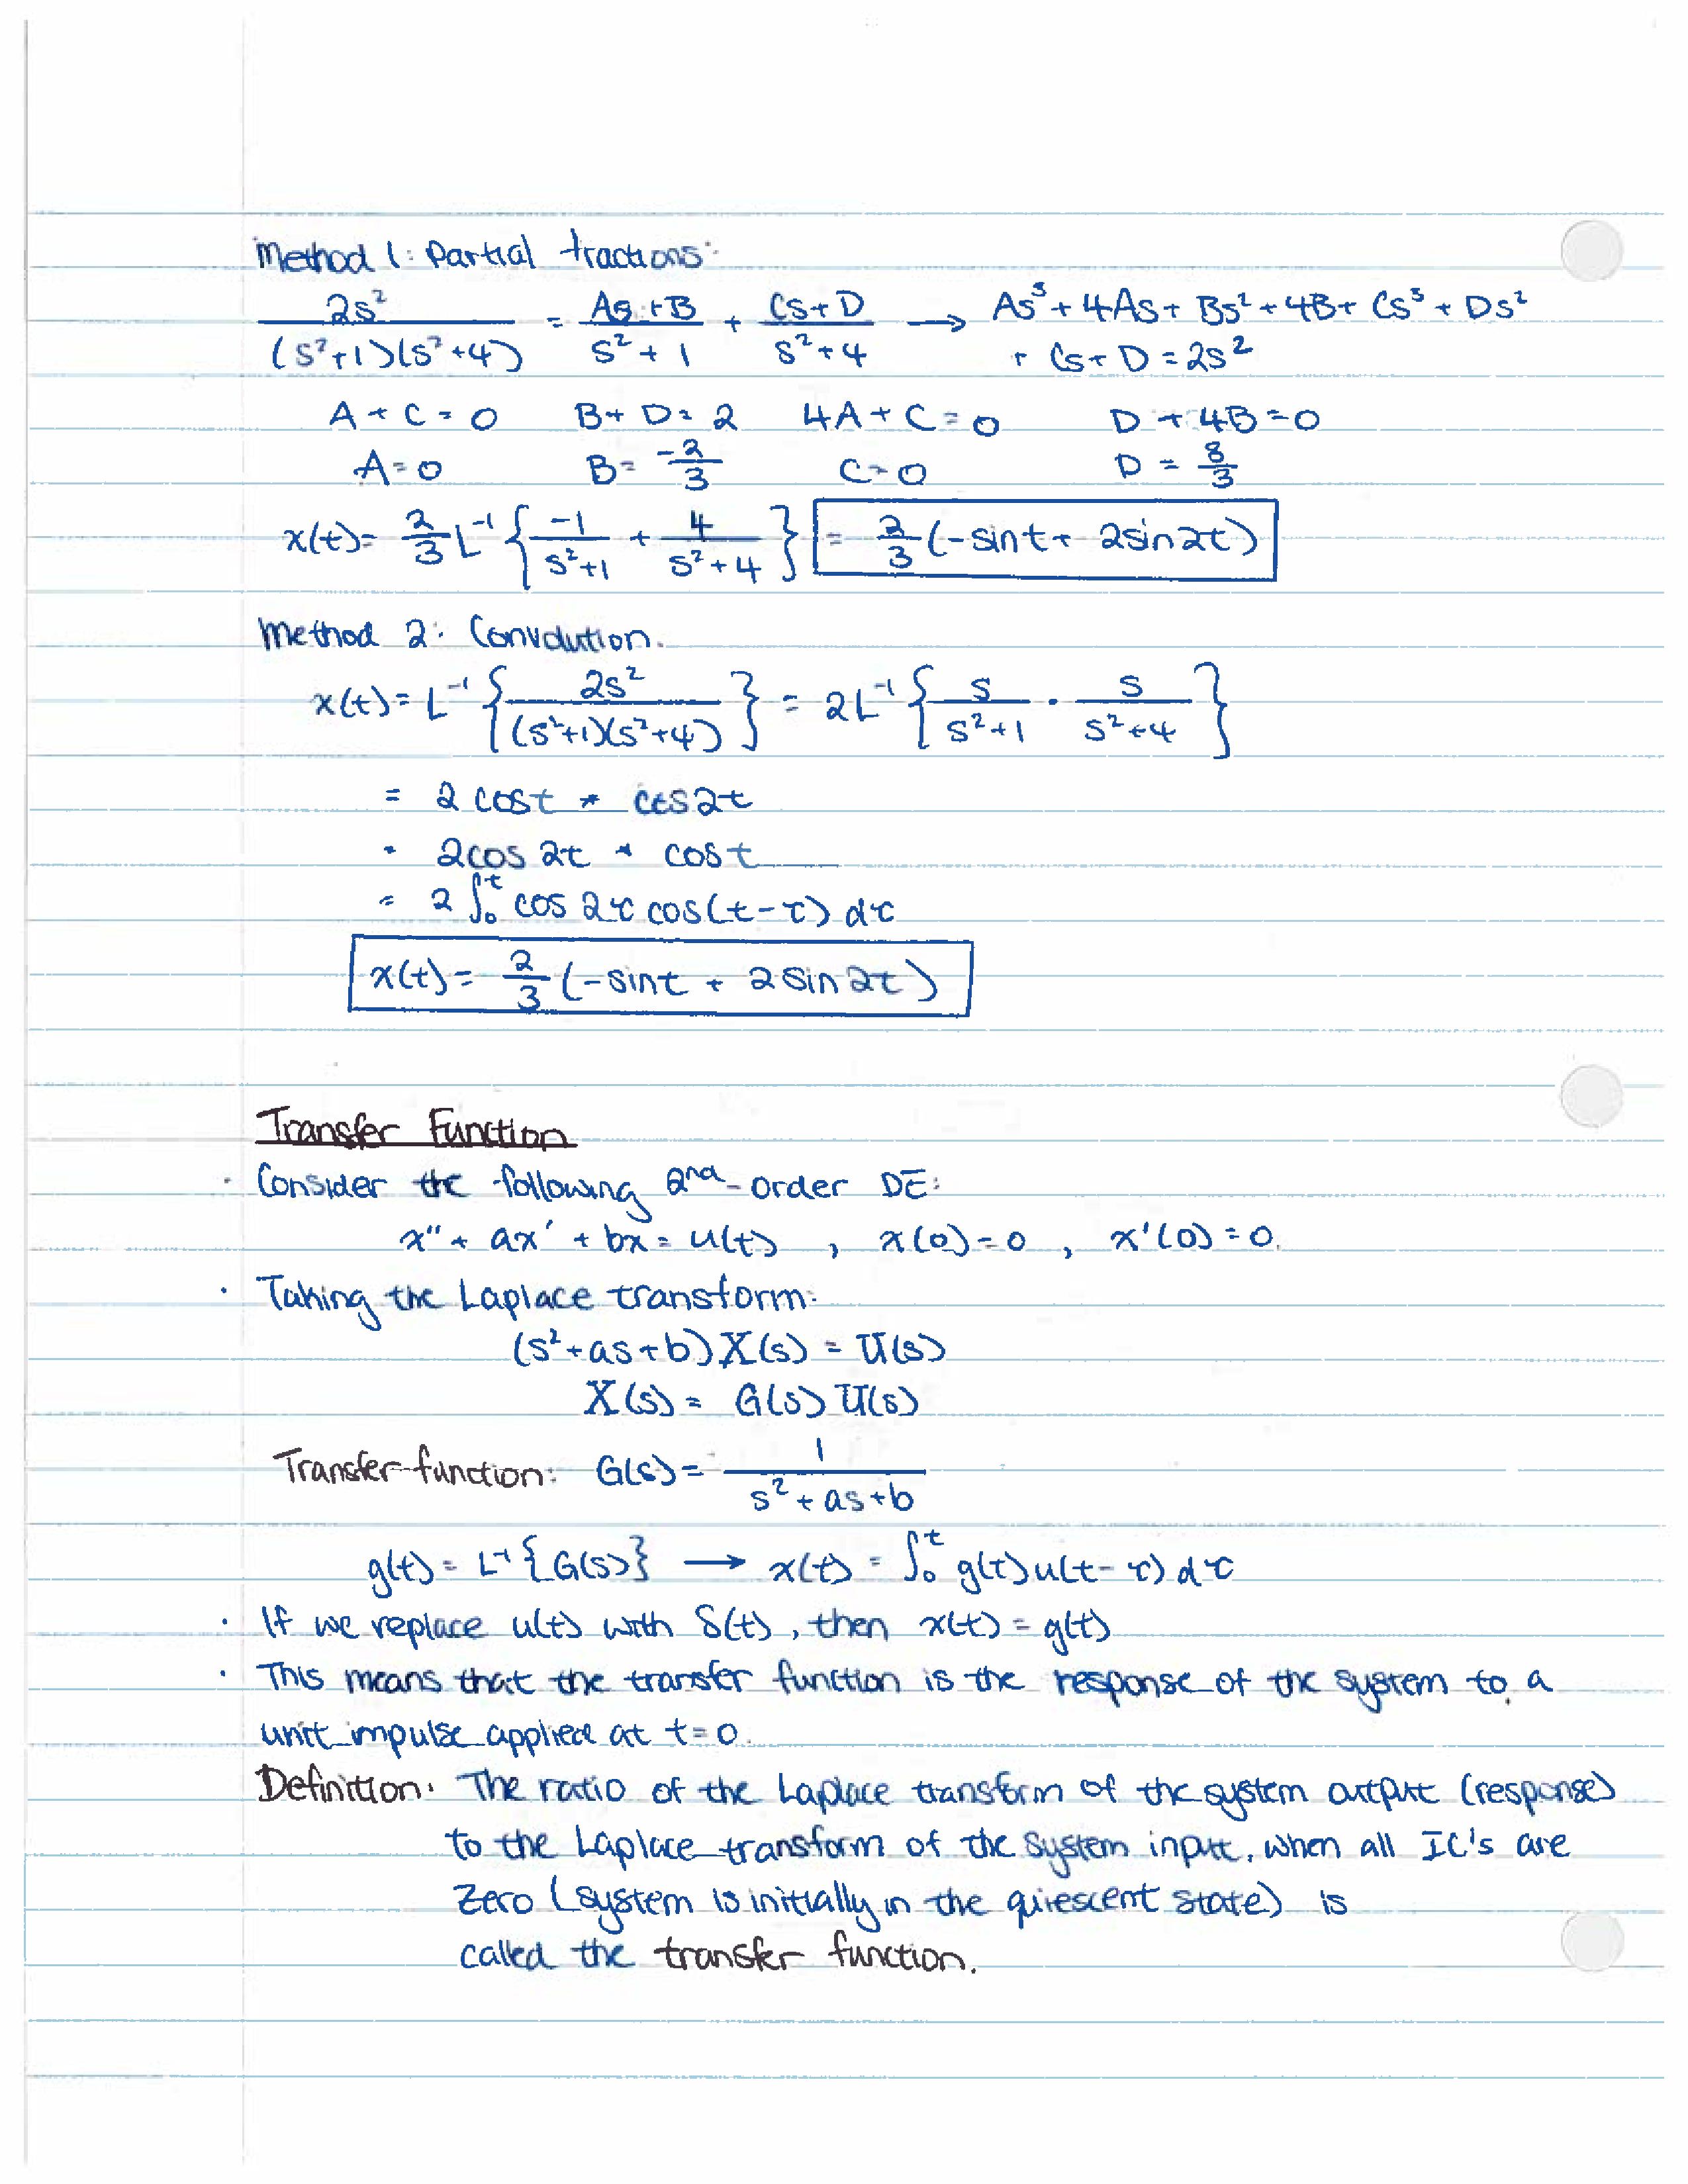 Method 1: Partial fractions:
2s²/((s²+1)(s²+4)) = (As+B)/(s²+1) + (Cs+D)/(s²+4) → As³ + 4As + Bs² + 4B + Cs³ + Ds²
+ Cs + D = 2s²
A + C = 0 B + D = 2 4A + C = 0 D + 4B = 0
A = 0 B = -2/3 C = 0 D = 8/3
x(t) = 2/3 L⁻¹ { -1/(s²+1) + 4/(s²+4) } = 2/3 (-sint + 2sin2t)
Method 2: Convolution.
x(t) = L⁻¹ { 2s²/((s²+1)(s²+4)) } = 2L⁻¹ { s/(s²+1) · s/(s²+4) }
= 2 cost * cos2t
= 2cos 2t * cost
= 2 ∫₀ᵗ cos 2τ cos(t-τ) dτ
x(t) = 2/3 (-sint + 2sin2t)
Transfer Function
· Consider the following 2nd-order DE:
x'' + ax' + bx = u(t) , x(0) = 0 , x'(0) = 0.
· Taking the Laplace transform:
(s²+as+b) X(s) = U(s)
X(s) = G(s) U(s)
Transfer function: G(s) = 1/(s² + as + b)
g(t) = L⁻¹ {G(s)} → x(t) = ∫₀ᵗ g(τ)u(t-τ) dτ
· If we replace u(t) with δ(t), then x(t) = g(t)
· This means that the transfer function is the response of the system to a
unit impulse applied at t=0.
Definition: The ratio of the Laplace transform of the system output (response)
to the Laplace transform of the system input, when all IC's are
Zero (system is initially in the quiescent state) is
called the transfer function.